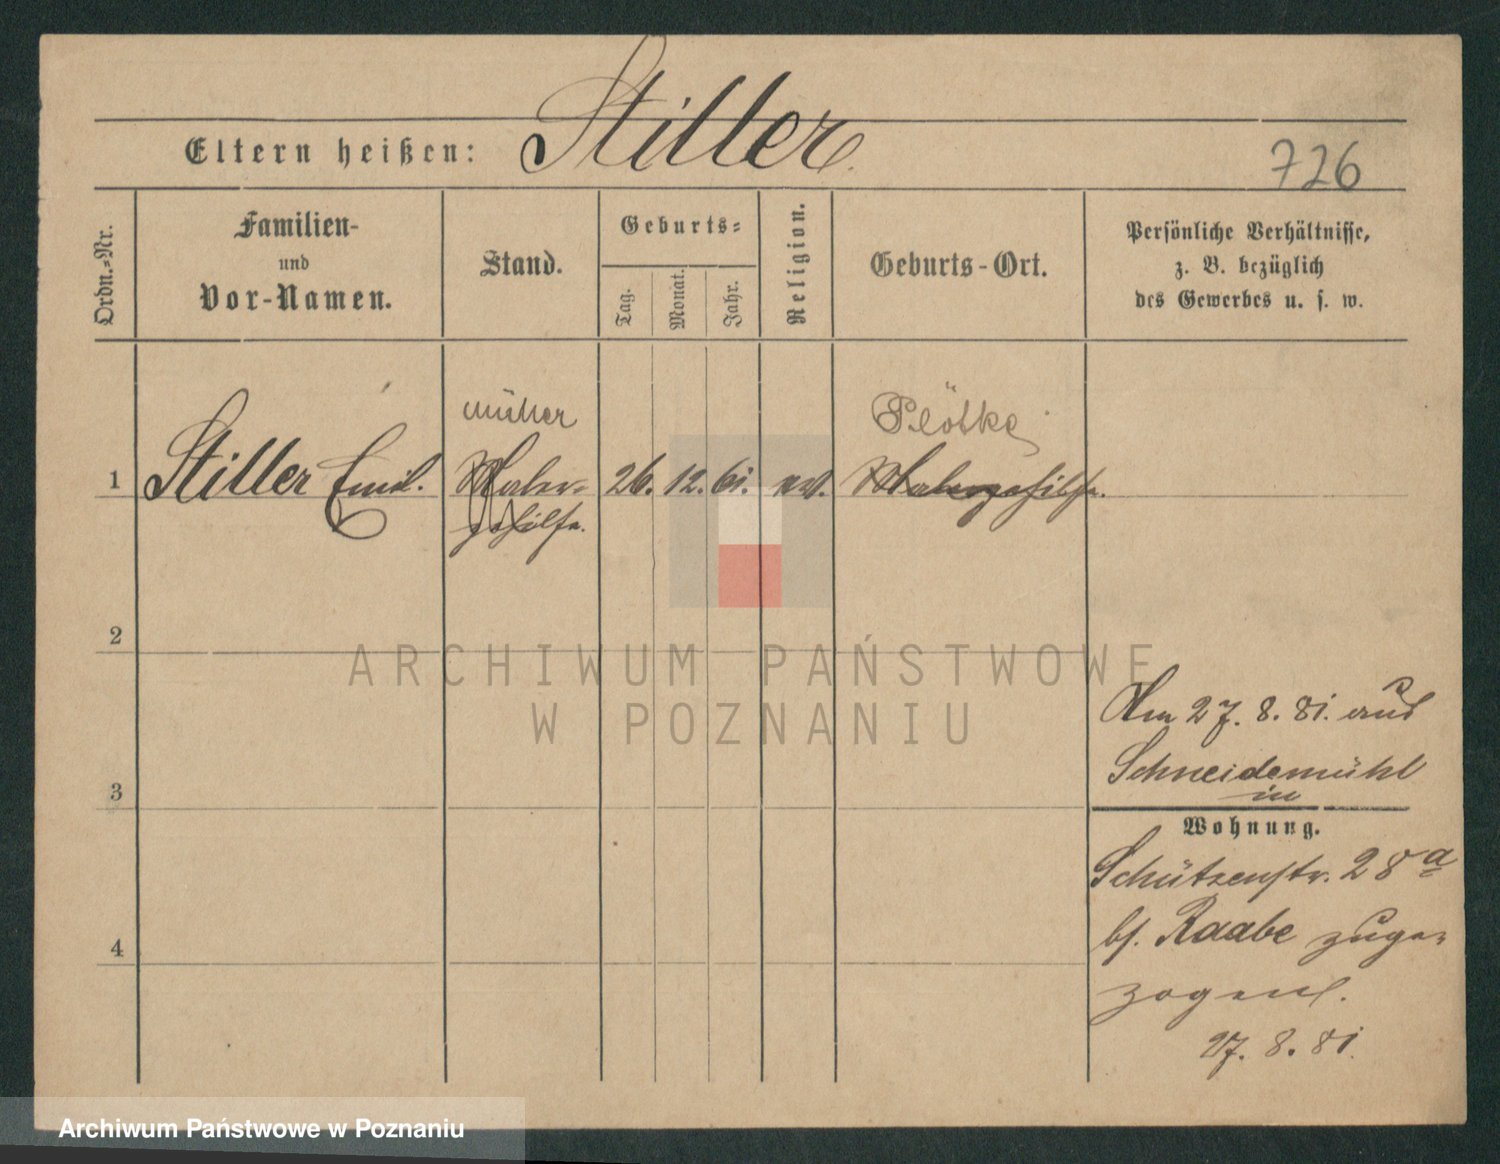 Stiller
Eltern heißen:
726
Ordn.-Nr.
Familien-
und
Vor-Namen.
Stand.
Geburts-
Tag.
Monat.
Jahr.
Religion.
Geburts-Ort.
Persönliche Verhältnisse,
z. B. bezüglich
des Gewerbes u. s. w.
Müller
Plötke
1 Stiller Emil. Maler- 26. 12. 61. ev. Malergehilfe.
gehilfe.
2
3
4
Am 27. 8. 81. aus
Schneidemühl
in
Wohnung.
Schützenstr. 28a
bei Raabe zuge-
zogen.
27. 8. 81.
ARCHIWUM PAŃSTWOWE
W POZNANIU
Archiwum Państwowe w Poznaniu